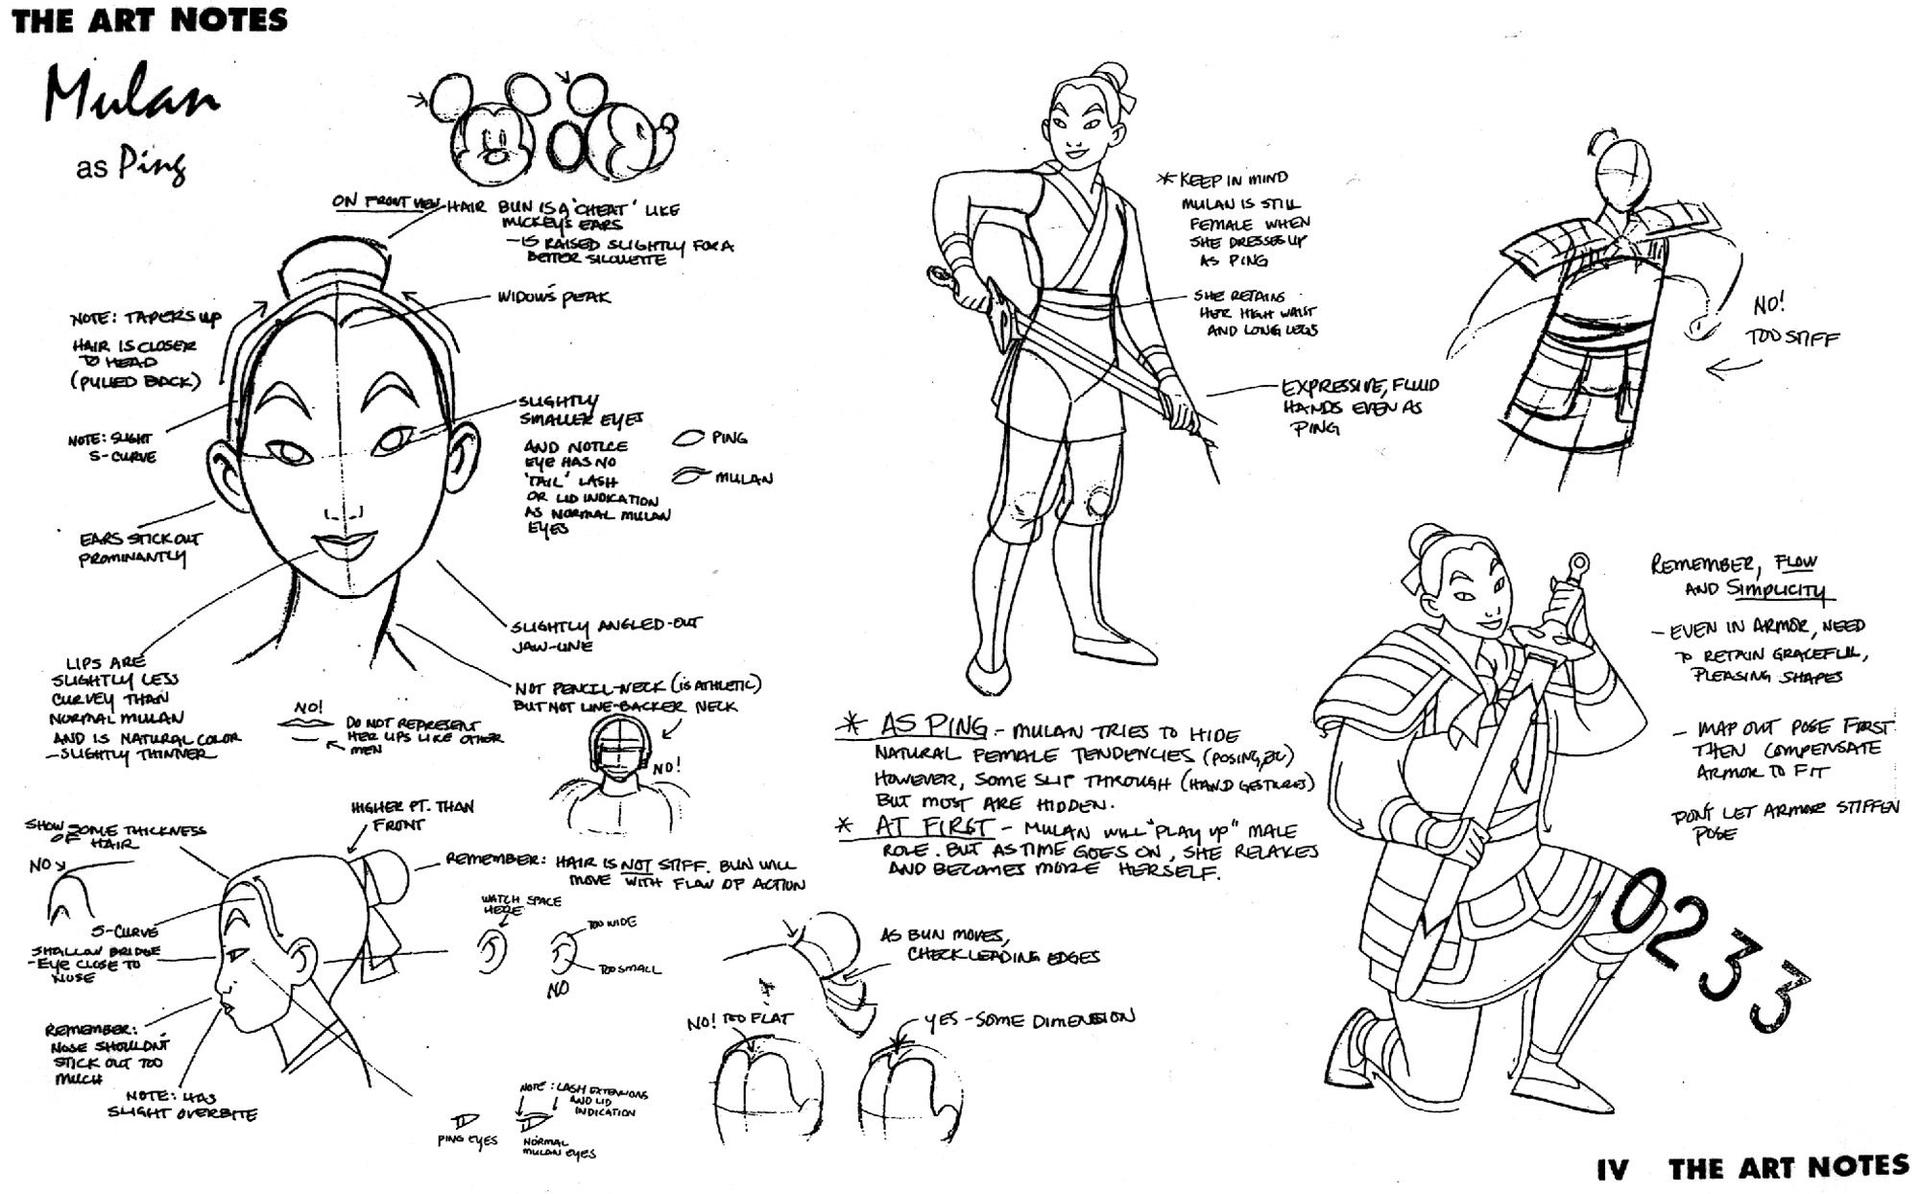 THE ART NOTES
Mulan
as Ping
ON FRONT VIEW HAIR BUN IS A 'CHEAT' LIKE
MICKEY'S EARS
- IS RAISED SLIGHTLY FOR A
BETTER SILOUETTE
WIDOW'S PEAK
NOTE: TAPERS UP
HAIR IS CLOSER
TO HEAD
(PULLED BACK)
NOTE: SLIGHT
S-CURVE
EARS STICK OUT
PROMINANTLY
SLIGHTLY
SMALLER EYES
AND NOTICE
EYE HAS NO
'TAIL' LASH
OR LID INDICATION
AS NORMAL MULAN
EYES
PING
MULAN
SLIGHTLY ANGLED-OUT
JAW-LINE
NOT PENCIL-NECK (IS ATHLETIC)
BUT NOT LINE-BACKER NECK
NO!
LIPS ARE
SLIGHTLY LESS
CURVEY THAN
NORMAL MULAN
AND IS NATURAL COLOR
- SLIGHTLY THINNER
NO!
DO NOT REPRESENT
HER LIPS LIKE OTHER
MEN
SHOW SOME THICKNESS
OF HAIR
NO
S-CURVE
SHALLOW BRIDGE
- EYE CLOSE TO
NOSE
REMEMBER:
NOSE SHOULDN'T
STICK OUT TOO
MUCH
NOTE: HAS
SLIGHT OVERBITE
HIGHER PT. THAN
FRONT
REMEMBER: HAIR IS NOT STIFF. BUN WILL
MOVE WITH FLOW OF ACTION
WATCH SPACE
HERE
TOO WIDE
TOO SMALL
NO
NOTE: LASH EXTENSIONS
AND LID
INDICATION
PING EYES
NORMAL
MULAN EYES
AS BUN MOVES,
CHECK LEADING EDGES
NO! TOO FLAT
YES - SOME DIMENSION
* KEEP IN MIND
MULAN IS STILL
FEMALE WHEN
SHE DRESSES UP
AS PING
SHE RETAINS
HER HIGH WAIST
AND LONG LEGS
EXPRESSIVE, FLUID
HANDS EVEN AS
PING
* AS PING - MULAN TRIES TO HIDE
NATURAL FEMALE TENDENCIES (POSING, ETC)
HOWEVER, SOME SLIP THROUGH (HAND GESTURES)
BUT MOST ARE HIDDEN.
* AT FIRST - MULAN WILL "PLAY UP" MALE
ROLE. BUT AS TIME GOES ON, SHE RELAXES
AND BECOMES MORE HERSELF.
NO!
TOO STIFF
REMEMBER, FLOW
AND SIMPLICITY
- EVEN IN ARMOR, NEED
TO RETAIN GRACEFUL,
PLEASING SHAPES
- MAP OUT POSE FIRST
THEN COMPENSATE
ARMOR TO FIT
DON'T LET ARMOR STIFFEN
POSE
0233
IV THE ART NOTES